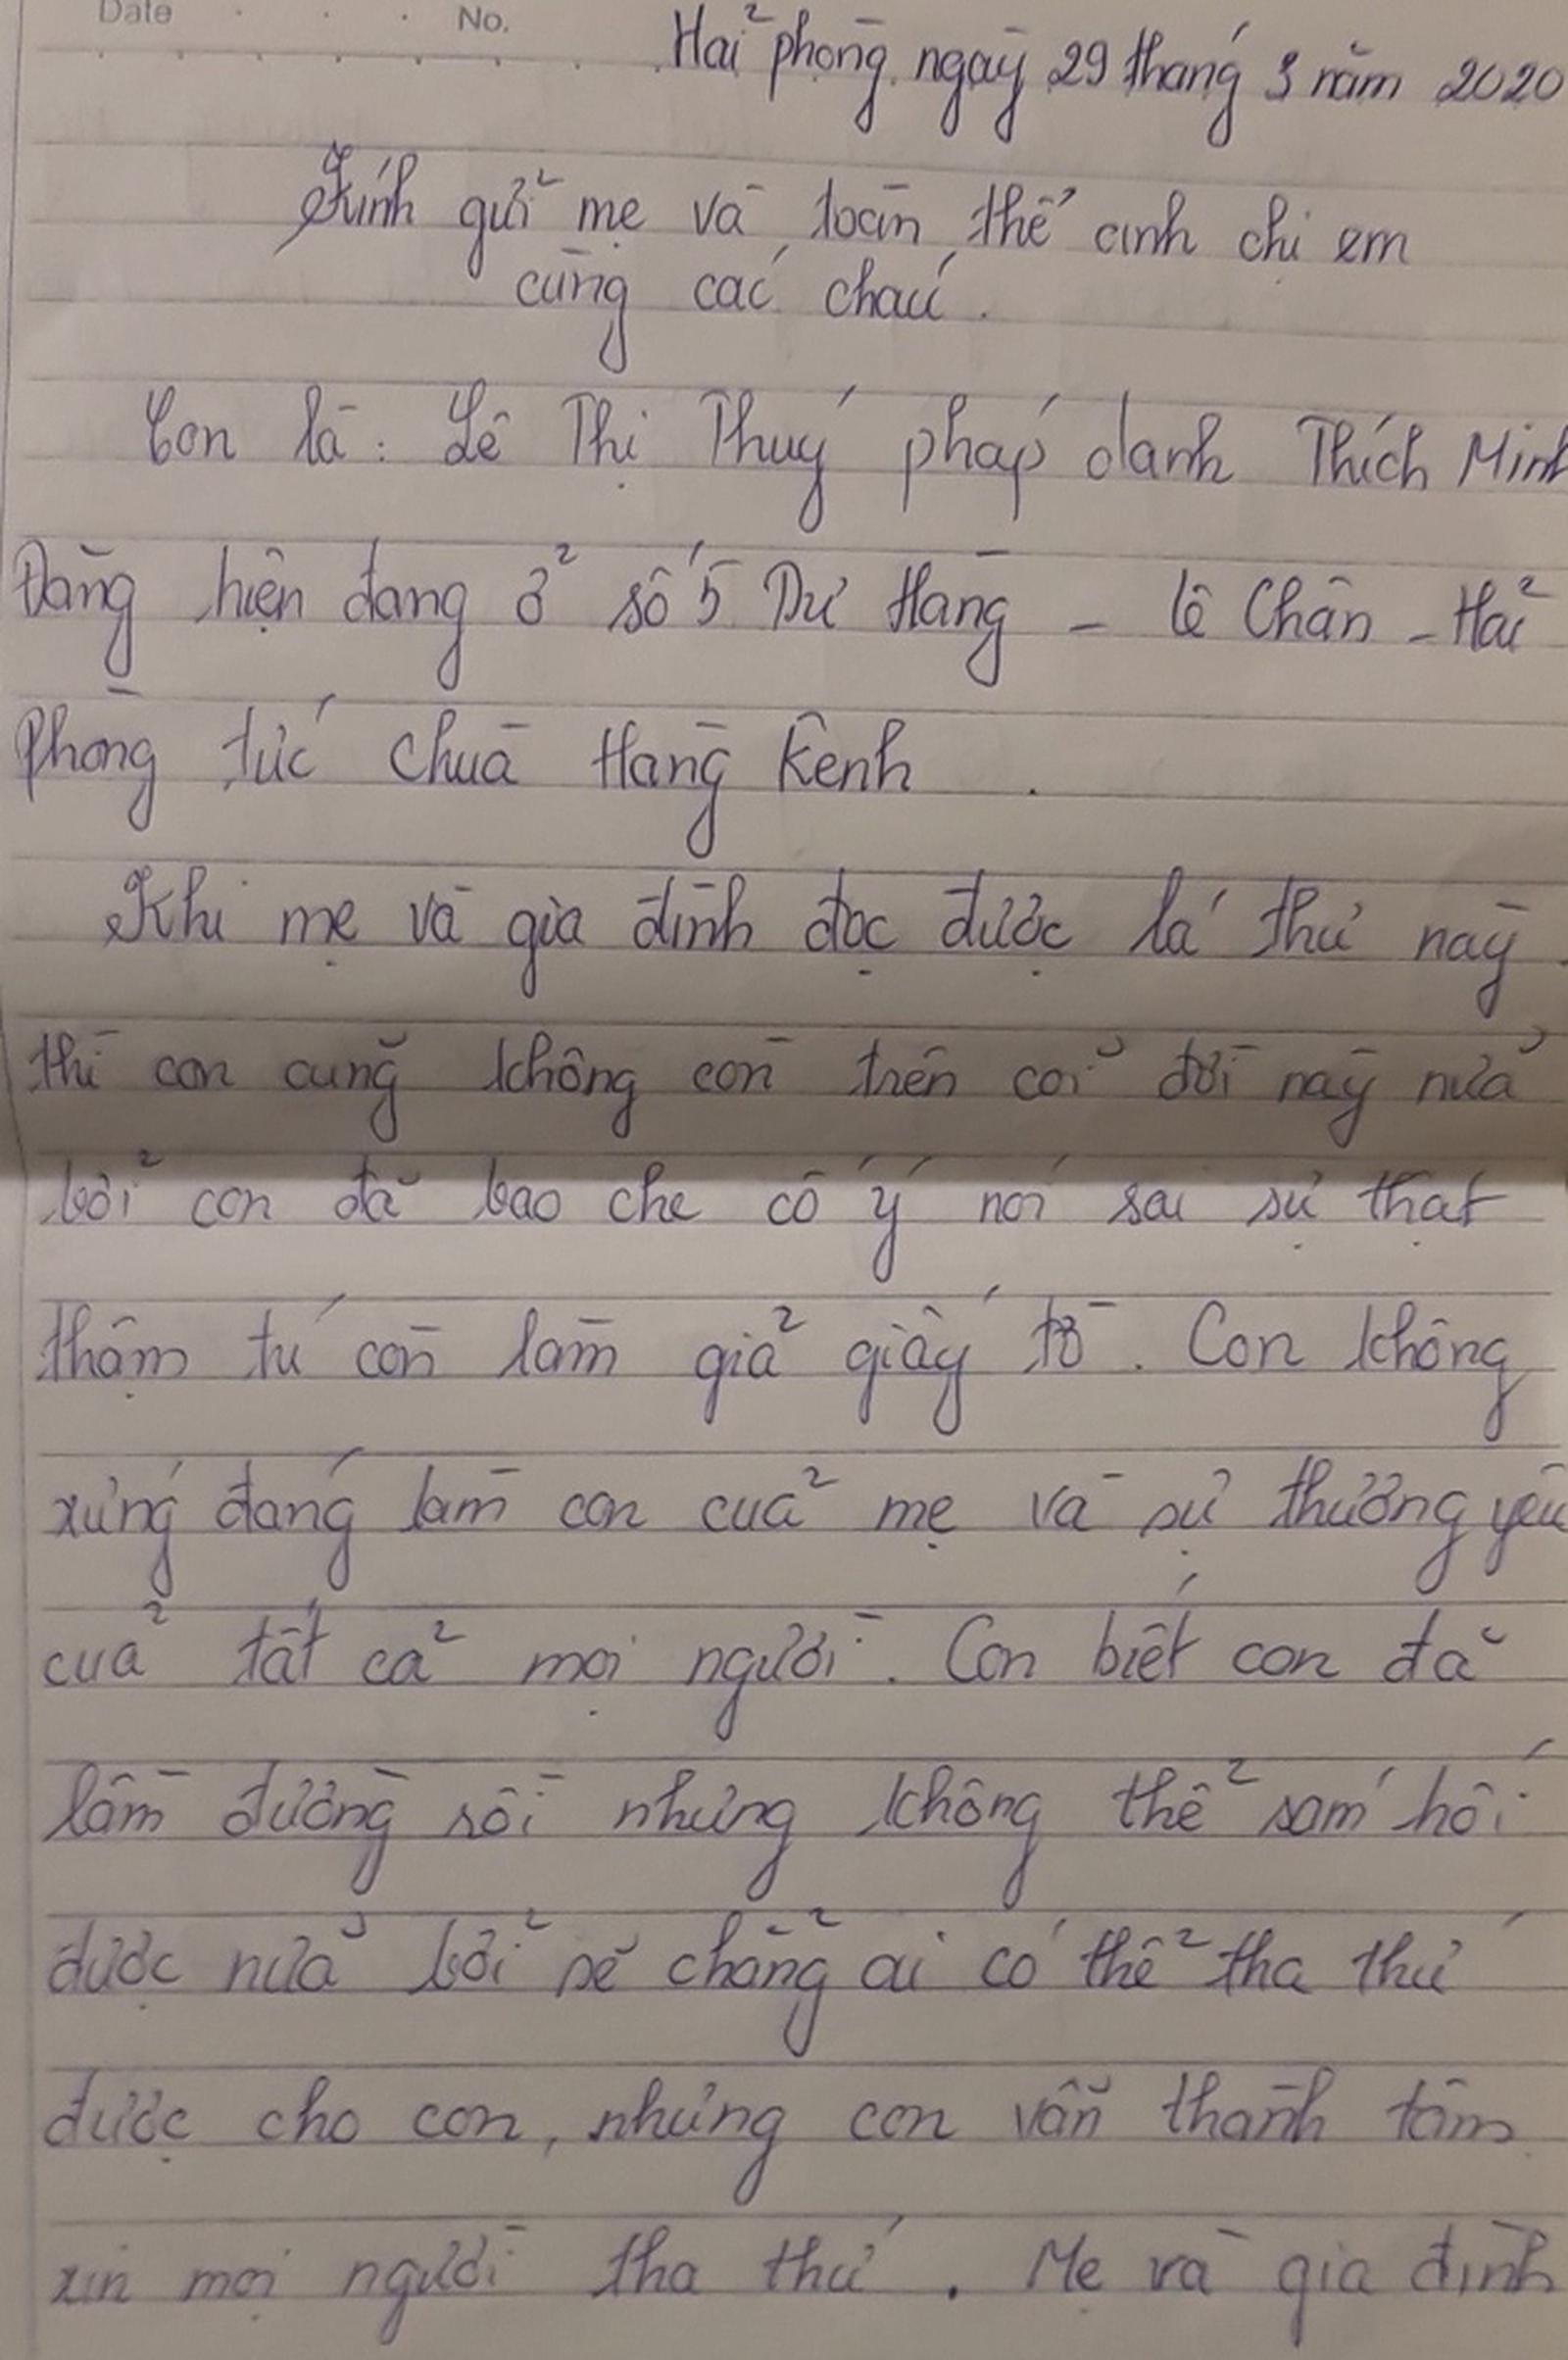 Date No.
Hải phòng, ngày 29 tháng 3 năm 2020
Kính gửi mẹ và toàn thể anh chị em
cùng các cháu.
Con là: Lê Thị Thuý pháp danh Thích Minh
Đăng hiện đang ở số 5 Dư Hàng - Lê Chân - Hải
Phòng tức chùa Hàng Kênh.
Khi mẹ và gia đình đọc được lá thư này.
thì con cũng không còn trên cõi đời này nữa
bởi con đã bao che cố ý nói sai sự thật
thậm trí còn làm giả giấy tờ. Con không
xứng đáng làm con của mẹ và sự thương yêu
của tất cả mọi người. Con biết con đã
lầm đường rồi nhưng không thể sám hối
được nữa bởi sẽ chẳng ai có thể tha thứ
được cho con, nhưng con vẫn thành tâm
xin mọi người tha thứ. Mẹ và gia đình